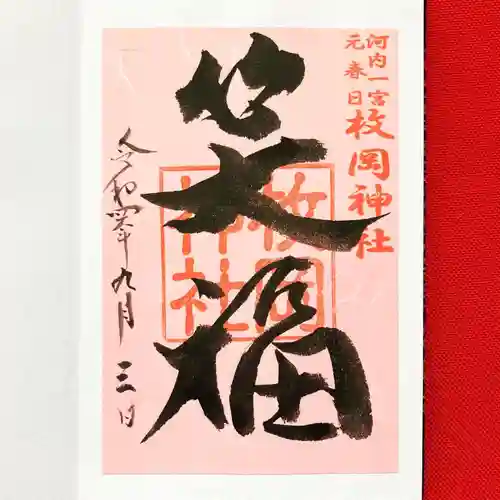 河内一宮
元春日
枚岡神社
笑福
枚岡
神社
令和四年九月三日